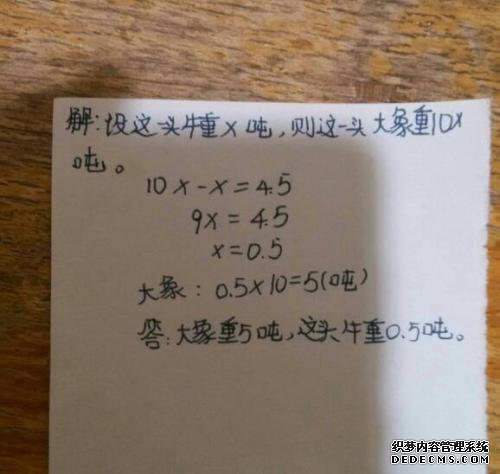 解:设这一头牛重x吨,则这一头大象重10x
吨。
10x-x=4.5
9x=4.5
x=0.5
大象:0.5×10=5(吨)
答:大象重5吨,这头牛重0.5吨。
织梦内容管理系统
DEDECMS.COM